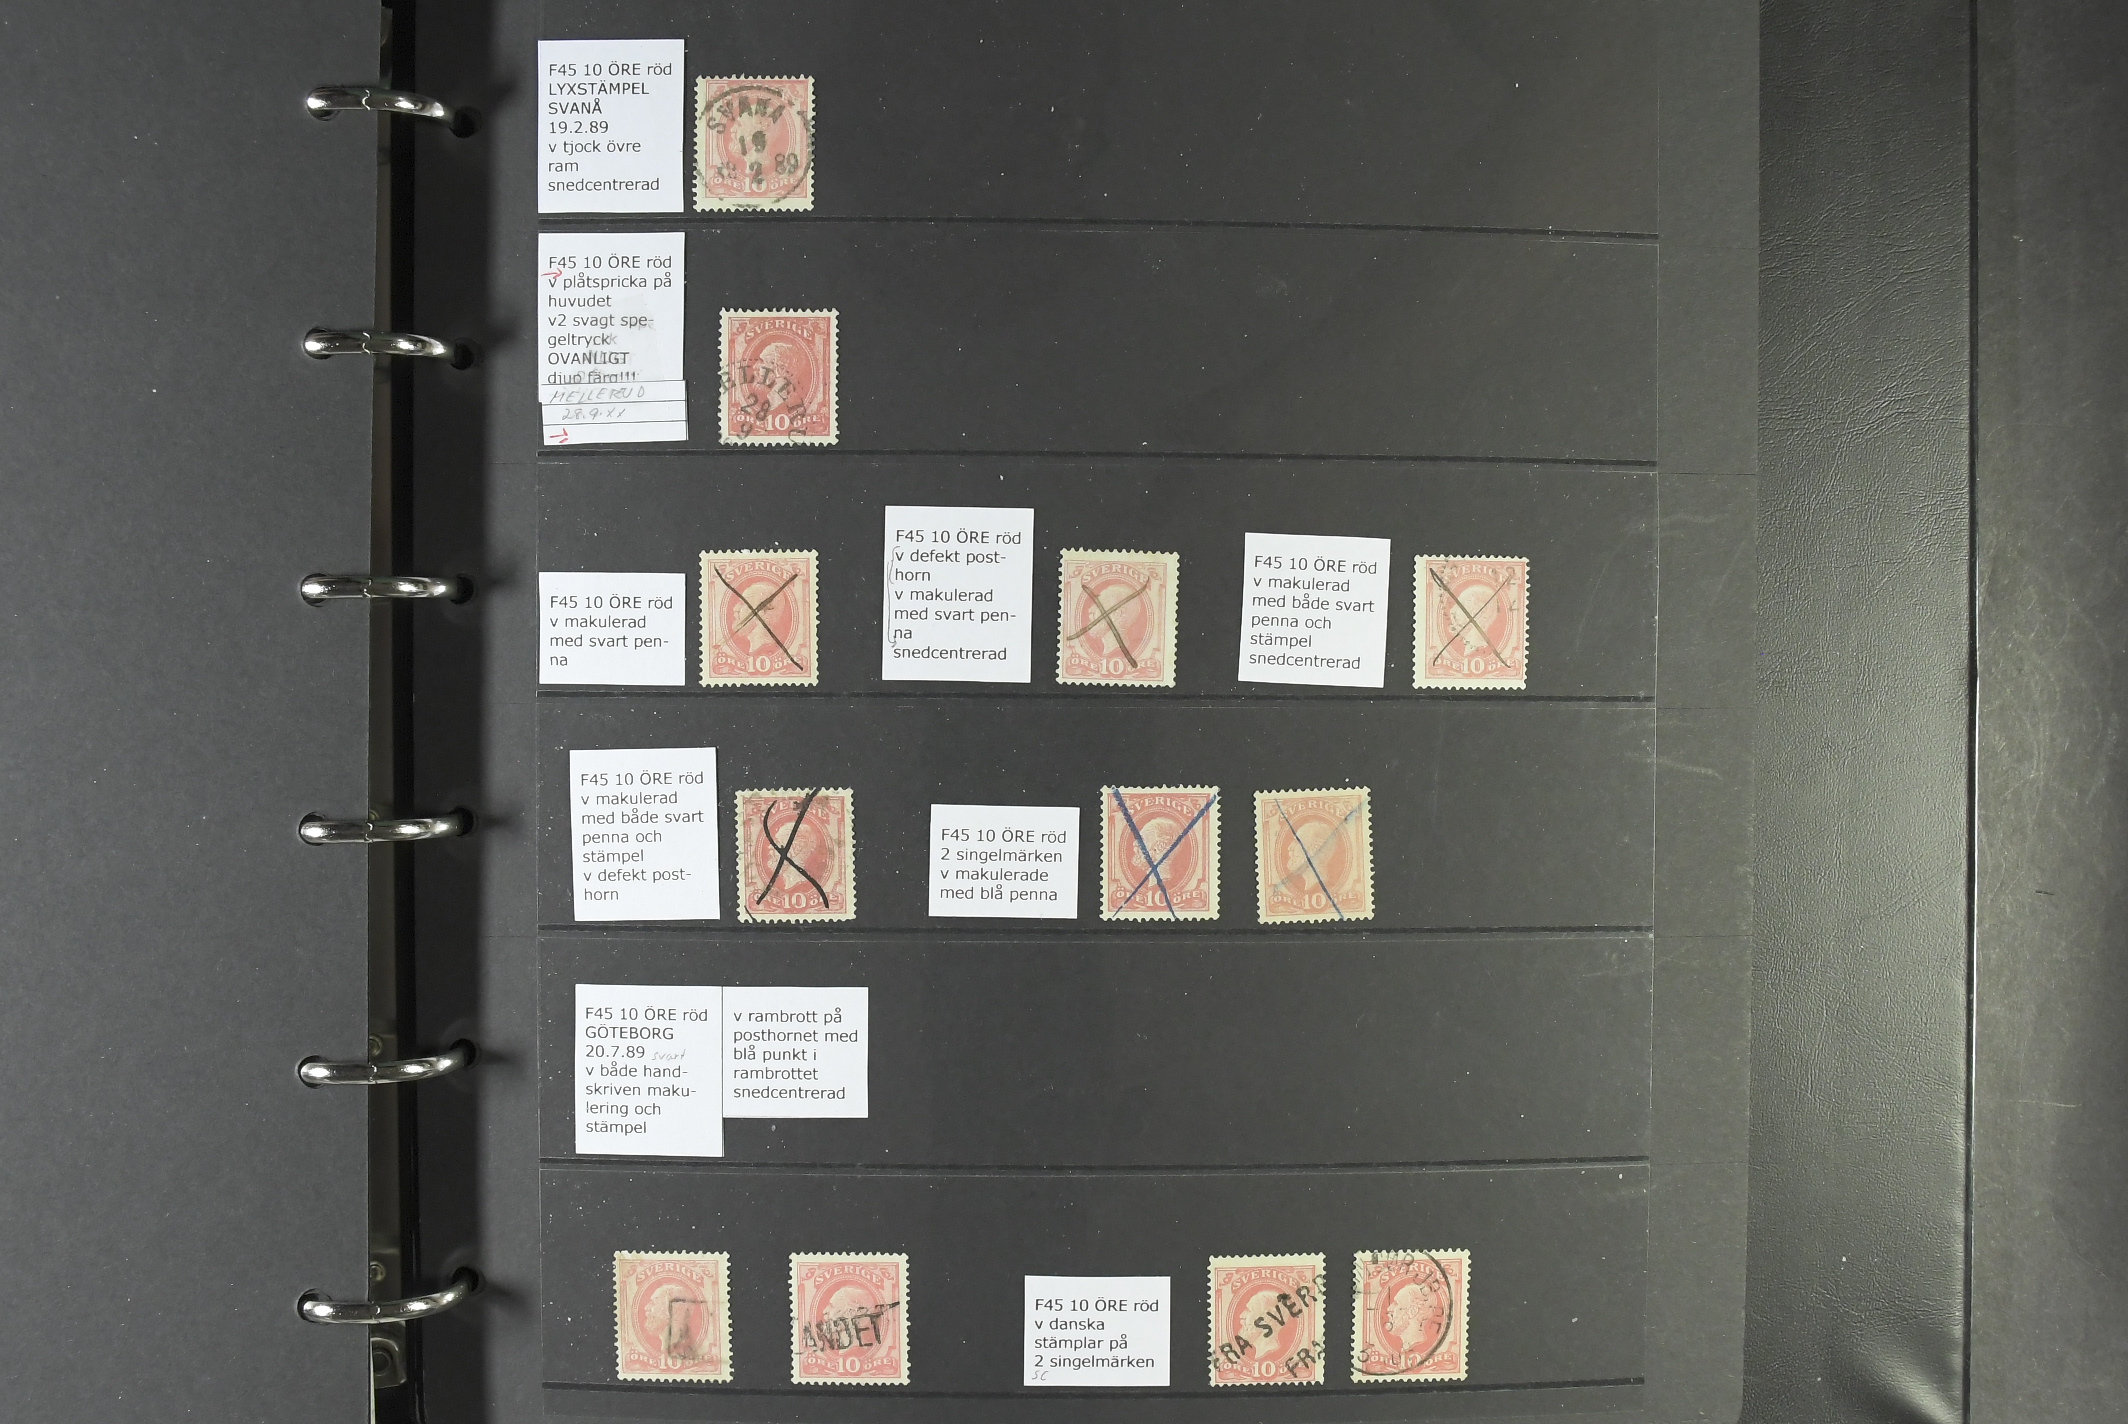 F45 10 ÖRE röd
LYXSTÄMPEL
SVANÅ
19.2.89
v tjock övre
ram
snedcentrerad
SVANÅ
19
2 89
ÖRE 10 ÖRE
F45 10 ÖRE röd
v plåtspricka på
huvudet
v2 svagt spe-
geltryck
OVANLIGT
djup färg!!!
MELLERUD
28.9.xx
SVERIGE
ELLERU
28
9
ÖRE 10 ÖRE
F45 10 ÖRE röd
v makulerad
med svart pen-
na
SVERIGE
ÖRE 10 ÖRE
F45 10 ÖRE röd
v defekt post-
horn
v makulerad
med svart pen-
na
snedcentrerad
SVERIGE
ÖRE 10 ÖRE
F45 10 ÖRE röd
v makulerad
med både svart
penna och
stämpel
snedcentrerad
SVERIGE
ÖRE 10 ÖRE
F45 10 ÖRE röd
v makulerad
med både svart
penna och
stämpel
v defekt post-
horn
SVERIGE
ÖRE 10 ÖRE
F45 10 ÖRE röd
2 singelmärken
v makulerade
med blå penna
SVERIGE
ÖRE 10 ÖRE
SVERIGE
ÖRE 10 ÖRE
F45 10 ÖRE röd
GÖTEBORG
20.7.89 svart
v både hand-
skriven maku-
lering och
stämpel
v rambrott på
posthornet med
blå punkt i
rambrottet
snedcentrerad
SVERIGE
ÖRE 10 ÖRE
SVERIGE
ANDET
ÖRE 10 ÖRE
F45 10 ÖRE röd
v danska
stämplar på
2 singelmärken
SC
SVERIGE
FRA SVERR
FRA
ÖRE 10 ÖRE
SVERIGE
ÖRE 10 ÖRE